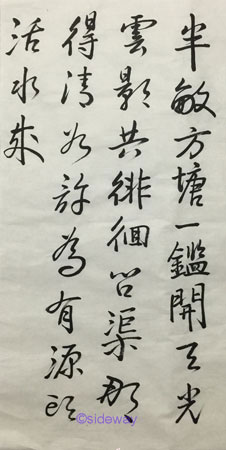 半畝方塘一鑑開天光
雲影共徘徊問渠那
得清如許為有源頭
活水來
©sideway